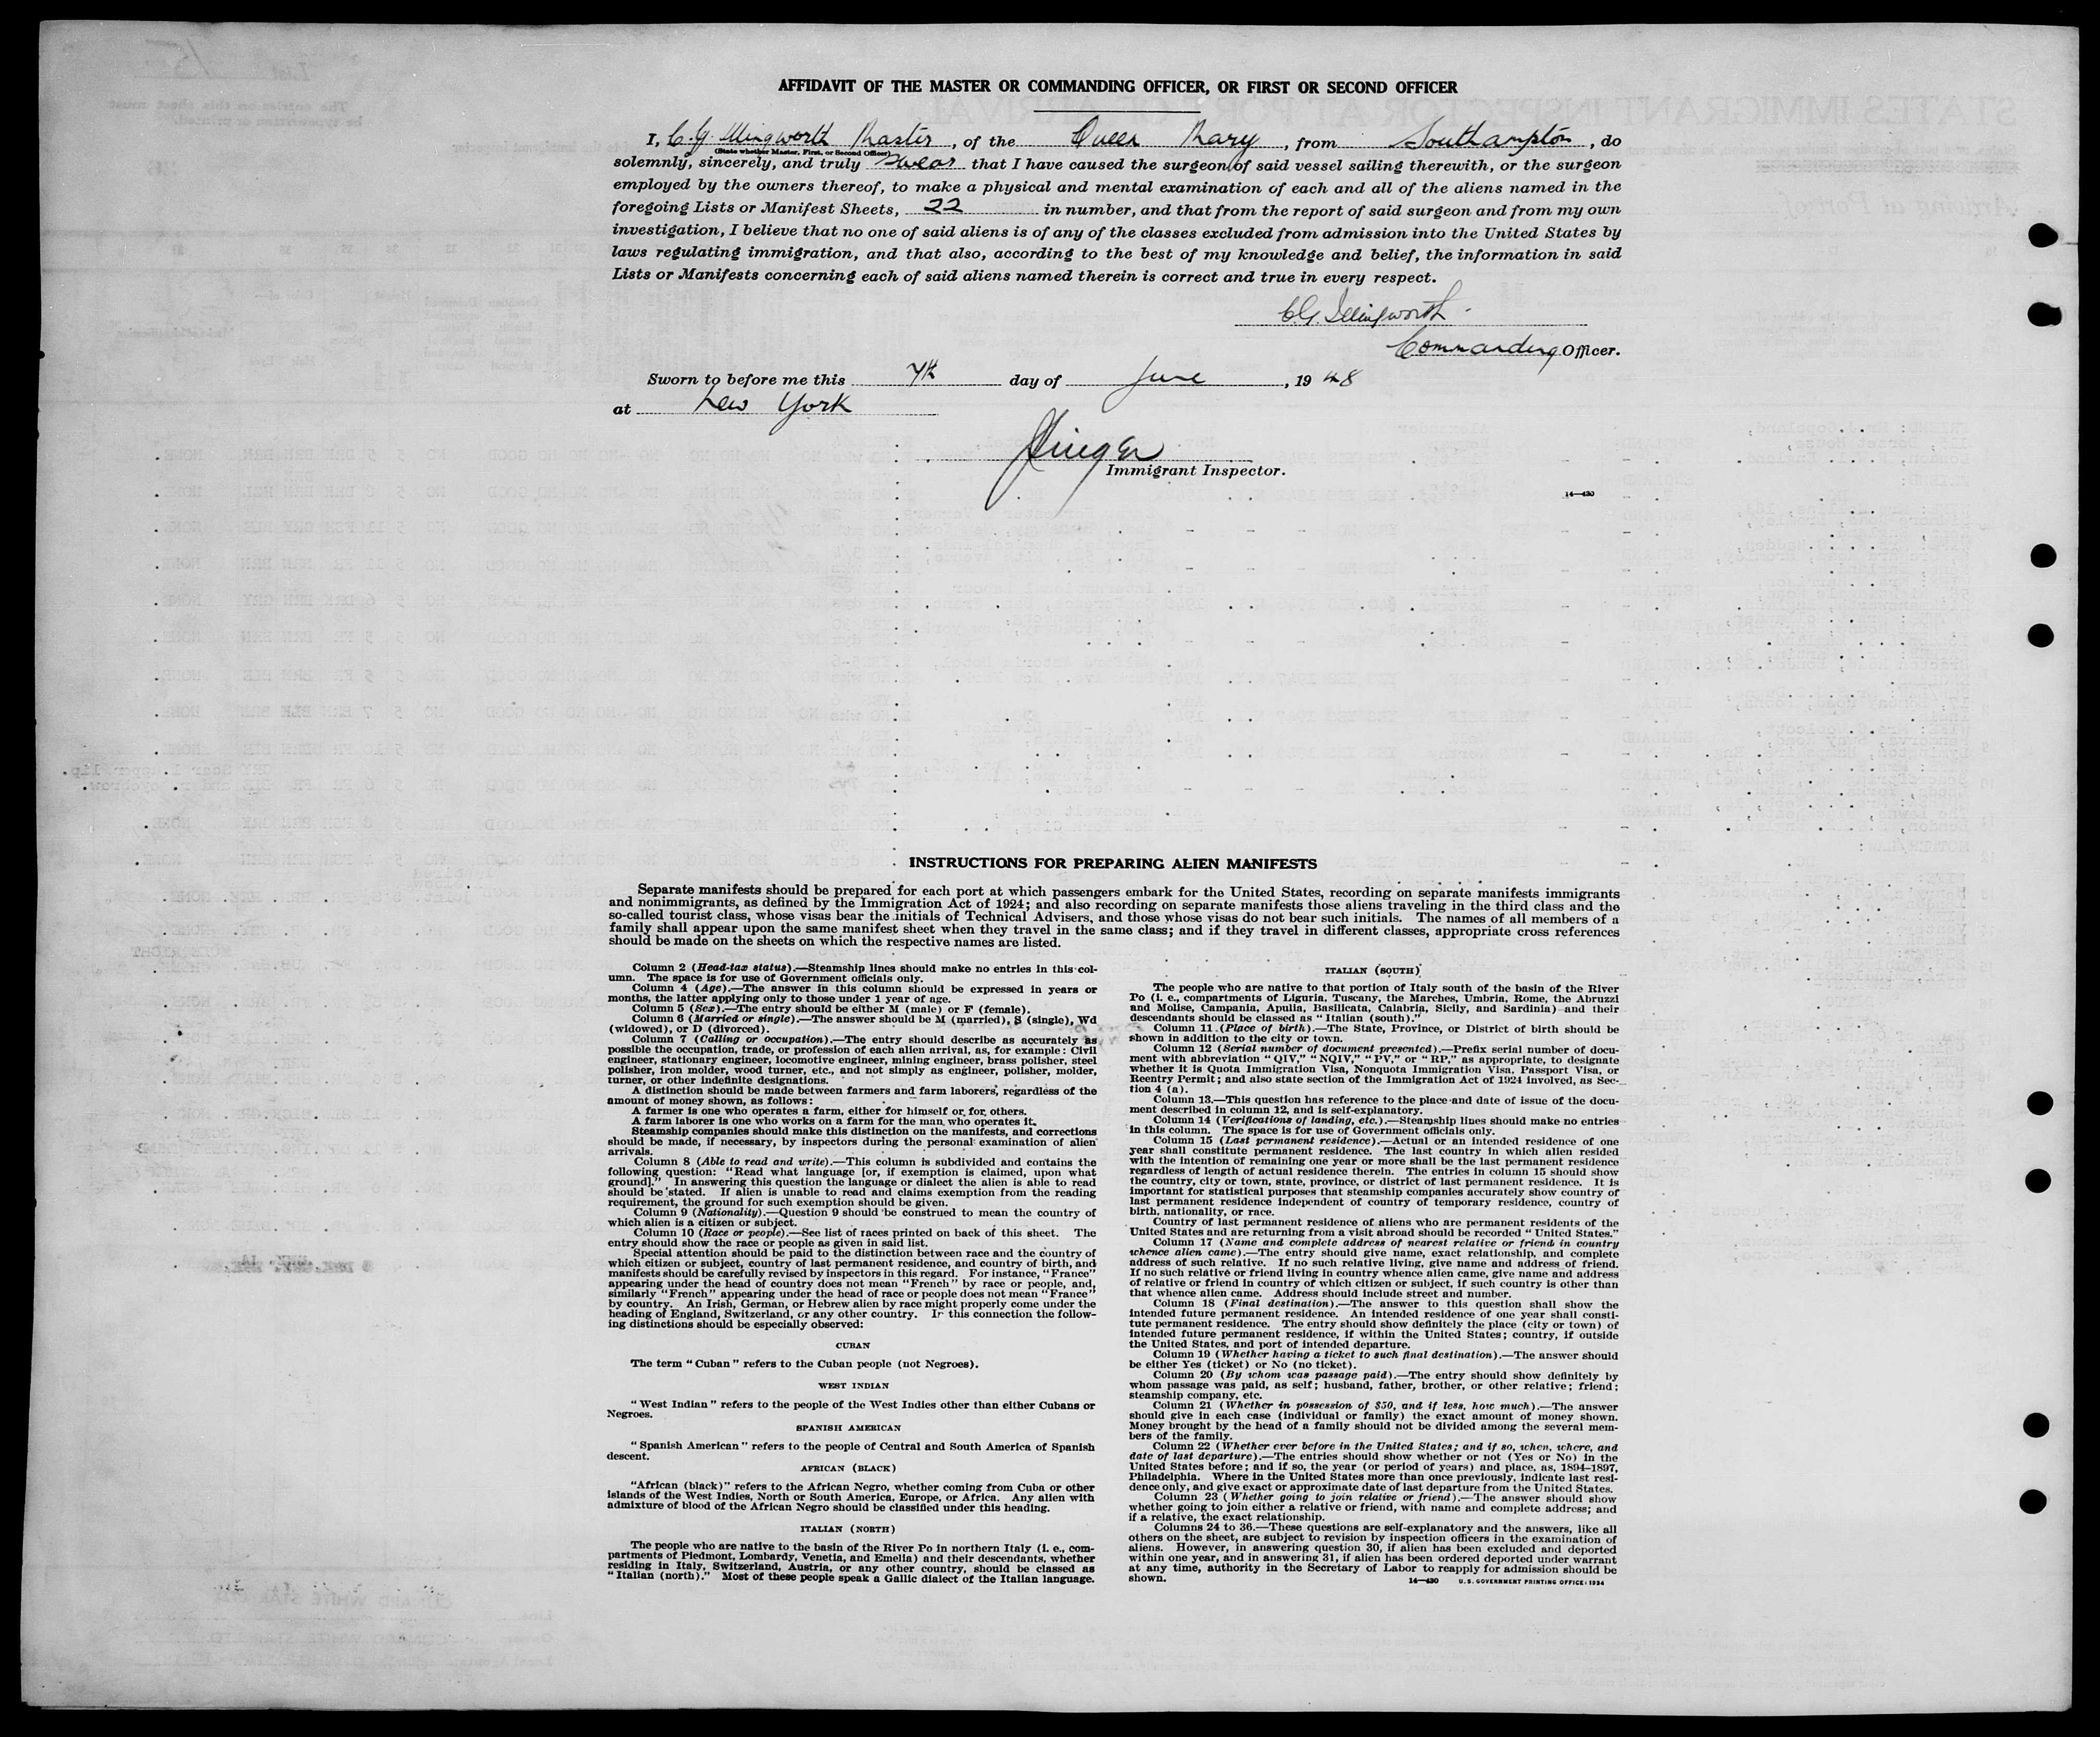 AFFIDAVIT OF THE MASTER OR COMMANDING OFFICER, OR FIRST OR SECOND OFFICER
I, C. G. Illingworth Master, of the Queen Mary, from Southampton, do
(State whether Master, First, or Second Officer)
solemnly, sincerely, and truly swear that I have caused the surgeon of said vessel sailing therewith, or the surgeon
employed by the owners thereof, to make a physical and mental examination of each and all of the aliens named in the
foregoing Lists or Manifest Sheets, 22 in number, and that from the report of said surgeon and from my own
investigation, I believe that no one of said aliens is of any of the classes excluded from admission into the United States by
laws regulating immigration, and that also, according to the best of my knowledge and belief, the information in said
Lists or Manifests concerning each of said aliens named therein is correct and true in every respect.
C.G. Illingworth
Commanding Officer.
Sworn to before me this 7th day of June, 1948
at New York
Immigrant Inspector.
14—430
INSTRUCTIONS FOR PREPARING ALIEN MANIFESTS
Separate manifests should be prepared for each port at which passengers embark for the United States, recording on separate manifests immigrants
and nonimmigrants, as defined by the Immigration Act of 1924; and also recording on separate manifests those aliens traveling in the third class and the
so-called tourist class, whose visas bear the initials of Technical Advisers, and those whose visas do not bear such initials. The names of all members of a
family shall appear upon the same manifest sheet when they travel in the same class; and if they travel in different classes, appropriate cross references
should be made on the sheets on which the respective names are listed.
Column 2 (Head-tax status).—Steamship lines should make no entries in this col-
umn. The space is for use of Government officials only.
Column 4 (Age).—The answer in this column should be expressed in years or
months, the latter applying only to those under 1 year of age.
Column 5 (Sex).—The entry should be either M (male) or F (female).
Column 6 (Married or single).—The answer should be M (married), S (single), Wd
(widowed), or D (divorced).
Column 7 (Calling or occupation).—The entry should describe as accurately as
possible the occupation, trade, or profession of each alien arrival, as, for example: Civil
engineer, stationary engineer, locomotive engineer, mining engineer, brass polisher, steel
polisher, iron molder, wood turner, etc., and not simply as engineer, polisher, molder,
turner, or other indefinite designations.
A distinction should be made between farmers and farm laborers, regardless of the
amount of money shown, as follows:
A farmer is one who operates a farm, either for himself or for others.
A farm laborer is one who works on a farm for the man who operates it.
Steamship companies should make this distinction on the manifests, and corrections
should be made, if necessary, by inspectors during the personal examination of alien
arrivals.
Column 8 (Able to read and write).—This column is subdivided and contains the
following question: "Read what language [or, if exemption is claimed, upon what
ground]." In answering this question the language or dialect the alien is able to read
should be stated. If alien is unable to read and claims exemption from the reading
requirement, the ground for such exemption should be given.
Column 9 (Nationality).—Question 9 should be construed to mean the country of
which alien is a citizen or subject.
Column 10 (Race or people).—See list of races printed on back of this sheet. The
entry should show the race or people as given in said list.
Special attention should be paid to the distinction between race and the country of
which citizen or subject, country of last permanent residence, and country of birth, and
manifests should be carefully revised by inspectors in this regard. For instance, "France"
appearing under the head of country does not mean "French" by race or people, and,
similarly "French" appearing under the head of race or people does not mean "France"
by country. An Irish, German, or Hebrew alien by race might properly come under the
heading of England, Switzerland, or any other country. In this connection the follow-
ing distinctions should be especially observed:
CUBAN
The term "Cuban" refers to the Cuban people (not Negroes).
WEST INDIAN
"West Indian" refers to the people of the West Indies other than either Cubans or
Negroes.
SPANISH AMERICAN
"Spanish American" refers to the people of Central and South America of Spanish
descent.
AFRICAN (BLACK)
"African (black)" refers to the African Negro, whether coming from Cuba or other
islands of the West Indies, North or South America, Europe, or Africa. Any alien with
admixture of blood of the African Negro should be classified under this heading.
ITALIAN (NORTH)
The people who are native to the basin of the River Po in northern Italy (i. e., com-
partments of Piedmont, Lombardy, Venetia, and Emelia) and their descendants, whether
residing in Italy, Switzerland, Austria, or any other country, should be classed as
"Italian (north)." Most of these people speak a Gallic dialect of the Italian language.
ITALIAN (SOUTH)
The people who are native to that portion of Italy south of the basin of the River
Po (i. e., compartments of Liguria, Tuscany, the Marches, Umbria, Rome, the Abruzzi
and Molise, Campania, Apulia, Basilicata, Calabria, Sicily, and Sardinia) and their
descendants should be classed as "Italian (south)."
Column 11 (Place of birth).—The State, Province, or District of birth should be
shown in addition to the city or town.
Column 12 (Serial number of document presented).—Prefix serial number of docu-
ment with abbreviation "QIV," "NQIV," "PV," or "RP," as appropriate, to designate
whether it is Quota Immigration Visa, Nonquota Immigration Visa, Passport Visa, or
Reentry Permit; and also state section of the Immigration Act of 1924 involved, as Sec-
tion 4 (a).
Column 13.—This question has reference to the place and date of issue of the docu-
ment described in column 12, and is self-explanatory.
Column 14 (Verifications of landing, etc.).—Steamship lines should make no entries
in this column. The space is for use of Government officials only.
Column 15 (Last permanent residence).—Actual or an intended residence of one
year shall constitute permanent residence. The last country in which alien resided
with the intention of remaining one year or more shall be the last permanent residence
regardless of length of actual residence therein. The entries in column 15 should show
the country, city or town, state, province, or district of last permanent residence. It is
important for statistical purposes that steamship companies accurately show country of
last permanent residence independent of country of temporary residence, country of
birth, nationality, or race.
Country of last permanent residence of aliens who are permanent residents of the
United States and are returning from a visit abroad should be recorded "United States."
Column 17 (Name and complete address of nearest relative or friend in country
whence alien came).—The entry should give name, exact relationship, and complete
address of such relative. If no such relative living, give name and address of friend.
If no such relative or friend living in country whence alien came, give name and address
of relative or friend in country of which citizen or subject, if such country is other than
that whence alien came. Address should include street and number.
Column 18 (Final destination).—The answer to this question shall show the
intended future permanent residence. An intended residence of one year shall consti-
tute permanent residence. The entry should show definitely the place (city or town) of
intended future permanent residence, if within the United States; country, if outside
the United States, and port of intended departure.
Column 19 (Whether having a ticket to such final destination).—The answer should
be either Yes (ticket) or No (no ticket).
Column 20 (By whom was passage paid).—The entry should show definitely by
whom passage was paid, as self; husband, father, brother, or other relative; friend;
steamship company, etc.
Column 21 (Whether in possession of $50, and if less, how much).—The answer
should give in each case (individual or family) the exact amount of money shown.
Money brought by the head of a family should not be divided among the several mem-
bers of the family.
Column 22 (Whether ever before in the United States; and if so, when, where, and
date of last departure).—The entries should show whether or not (Yes or No) in the
United States before; and if so, the year (or period of years) and place, as, 1894–1897,
Philadelphia. Where in the United States more than once previously, indicate last resi-
dence only, and give exact or approximate date of last departure from the United States.
Column 23 (Whether going to join relative or friend).—The answer should show
whether going to join either a relative or friend, with name and complete address; and
if a relative, the exact relationship.
Columns 24 to 36.—These questions are self-explanatory and the answers, like all
others on the sheet, are subject to revision by inspection officers in the examination of
aliens. However, in answering question 30, if alien has been excluded and deported
within one year, and in answering 31, if alien has been ordered deported under warrant
at any time, authority in the Secretary of Labor to reapply for admission should be
shown.
14—430 U. S. GOVERNMENT PRINTING OFFICE: 1934